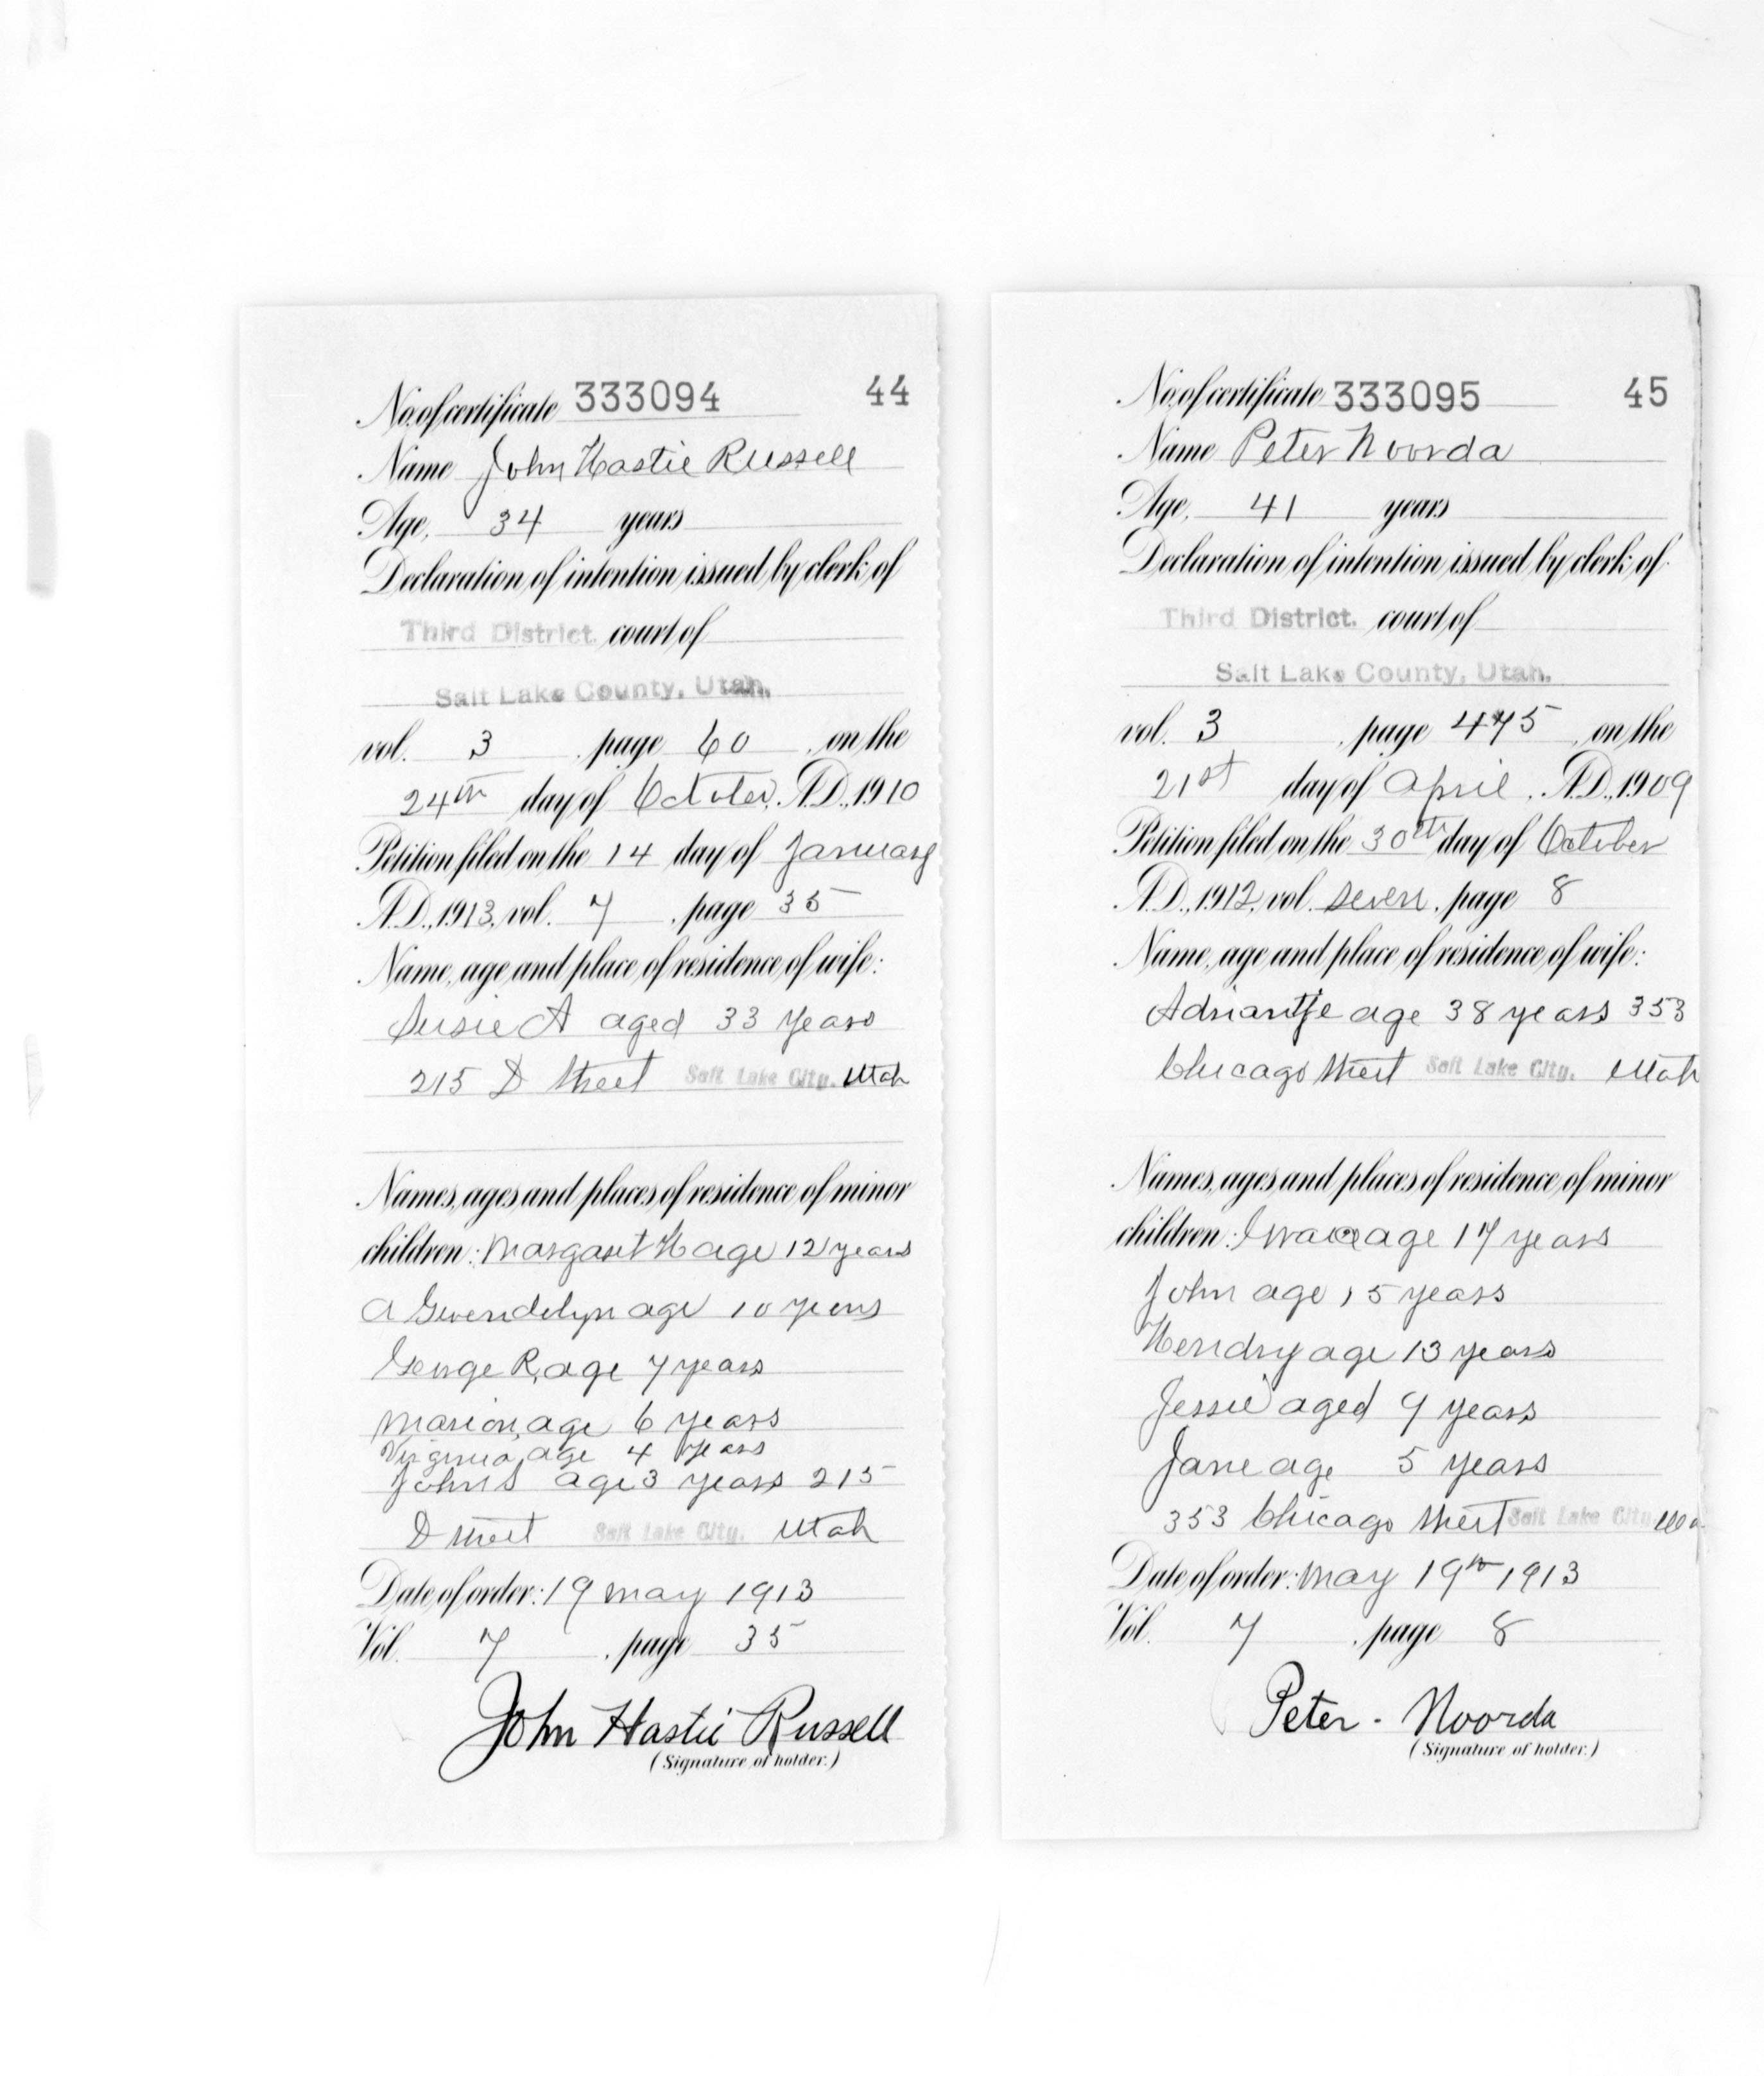 No. of certificate 333094 44
Name John Hastie Russell
Age, 34 years
Declaration of intention issued by clerk of
Third District. court of
Salt Lake County, Utah.
vol. 3, page 60, on the
24th day of October, A.D., 1910
Petition filed on the 14 day of January
A.D., 1913, vol. 7, page 35
Name, age and place of residence of wife:
Susie A aged 33 years
215 D Street Salt Lake City. Utah
Names, ages and places of residence of minor
children: Margaret H age 12 years
A Gwendolyn age 10 years
George R, age 7 years
Marion, age 6 years
Virginia, age 4 years
John S age 3 years 215
D Street Salt Lake City. Utah
Date of order: 19 May 1913
Vol. 7, page 35
John Hastie Russell
(Signature of holder.)
No. of certificate 333095 45
Name Peter Noorda
Age, 41 years
Declaration of intention issued by clerk of
Third District. court of
Salt Lake County, Utah.
vol. 3, page 475, on the
21st day of April, A.D., 1909
Petition filed on the 30th day of October
A.D., 1912, vol. seven, page 8
Name, age and place of residence of wife:
Adriantje age 38 years 353
Chicago Street Salt Lake City. Utah
Names, ages and places of residence of minor
children: age 17 years
John age 15 years
Hendry age 13 years
Jessie aged 9 years
Jane age 5 years
353 Chicago Street Salt Lake City
Date of order: May 19th 1913
Vol. 7, page 8
Peter - Noorda
(Signature of holder.)